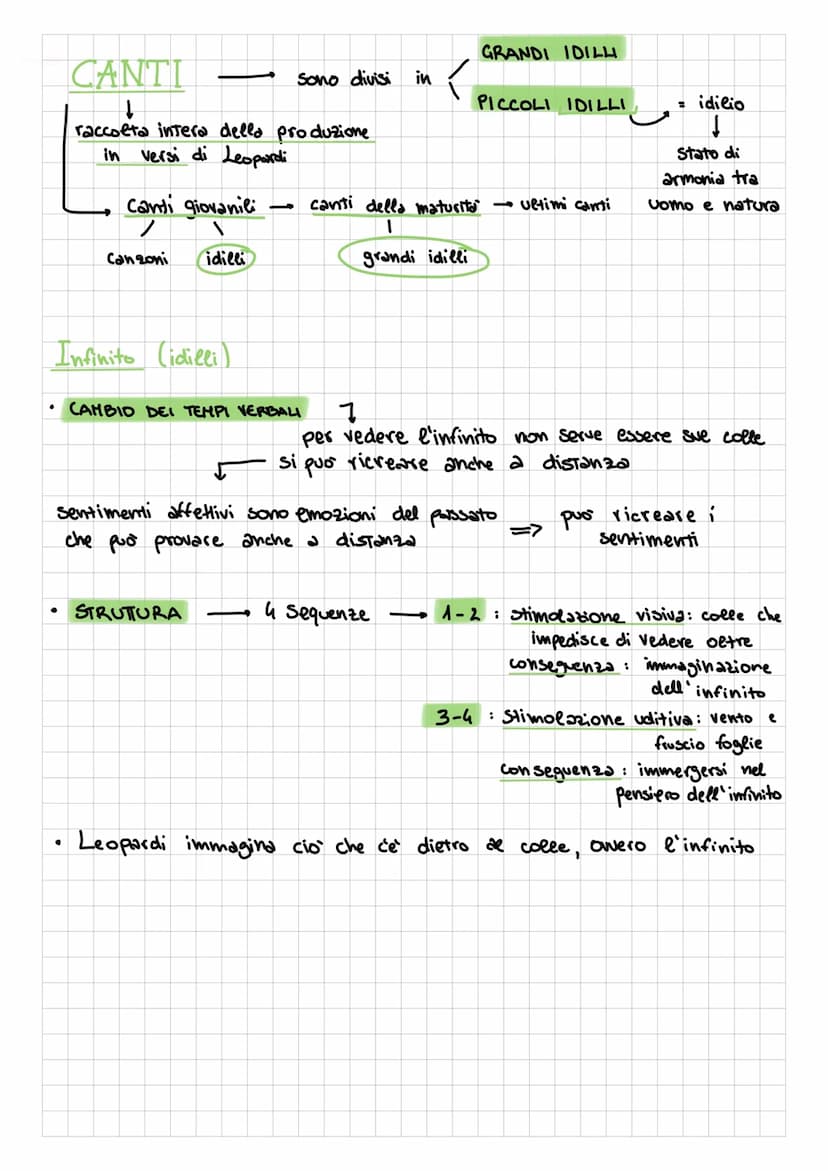 GRANDI IDILLI
CANTI → sono divisi in
PICCOLI IDILLI = idilio
raccolta intera della produzione
in versi di Leopardi
Stato di
armonia tra
uomo e natura
Canti giovanili → canti della maturità → ultimi canti
Canzoni idilli grandi idilli
Infinito (idilli)
• CAMBIO DEI TEMPI VERBALI
per vedere l'infinito non serve essere sul colle
si può ricreare anche a distanza
sentimenti affettivi sono emozioni del passato
che può provare anche a distanza
=> può ricreare i
sentimenti
• STRUTTURA → 4 Sequenze → 1-2 : stimolazione visiva: colle che
impedisce di vedere oltre
conseguenza : immaginazione
dell'infinito
3-4 : Stimolazione uditiva: vento e
fruscio foglie
conseguenza : immergersi nel
pensiero dell'infinito
• Leopardi immagina ciò che c'è dietro al colle, ovvero l'infinito